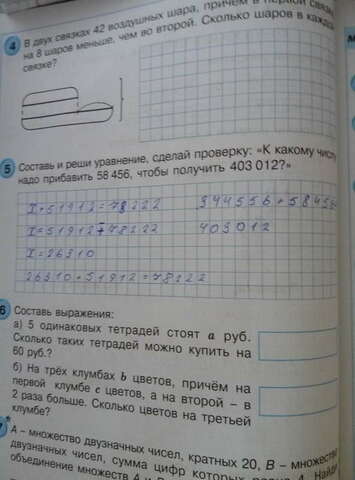 4 В двух связках 42 воздушных шара, причём в первой связке
на 8 шаров меньше, чем во второй. Сколько шаров в каждой
связке?
5 Составь и реши уравнение, сделай проверку: «К какому числу
надо прибавить 58 456, чтобы получить 403 012?»
X+51912=78222
344556+58456
X=51912+78222
403012
X=26310
26310+51912=78222
6 Составь выражения:
а) 5 одинаковых тетрадей стоят a руб.
Сколько таких тетрадей можно купить на
60 руб.?
б) На трёх клумбах b цветов, причём на
первой клумбе c цветов, а на второй – в
2 раза больше. Сколько цветов на третьей
клумбе?
A – множество двузначных чисел, кратных 20, B – множество
двузначных чисел, сумма цифр которых равна 4. Найди
объединение множеств A и